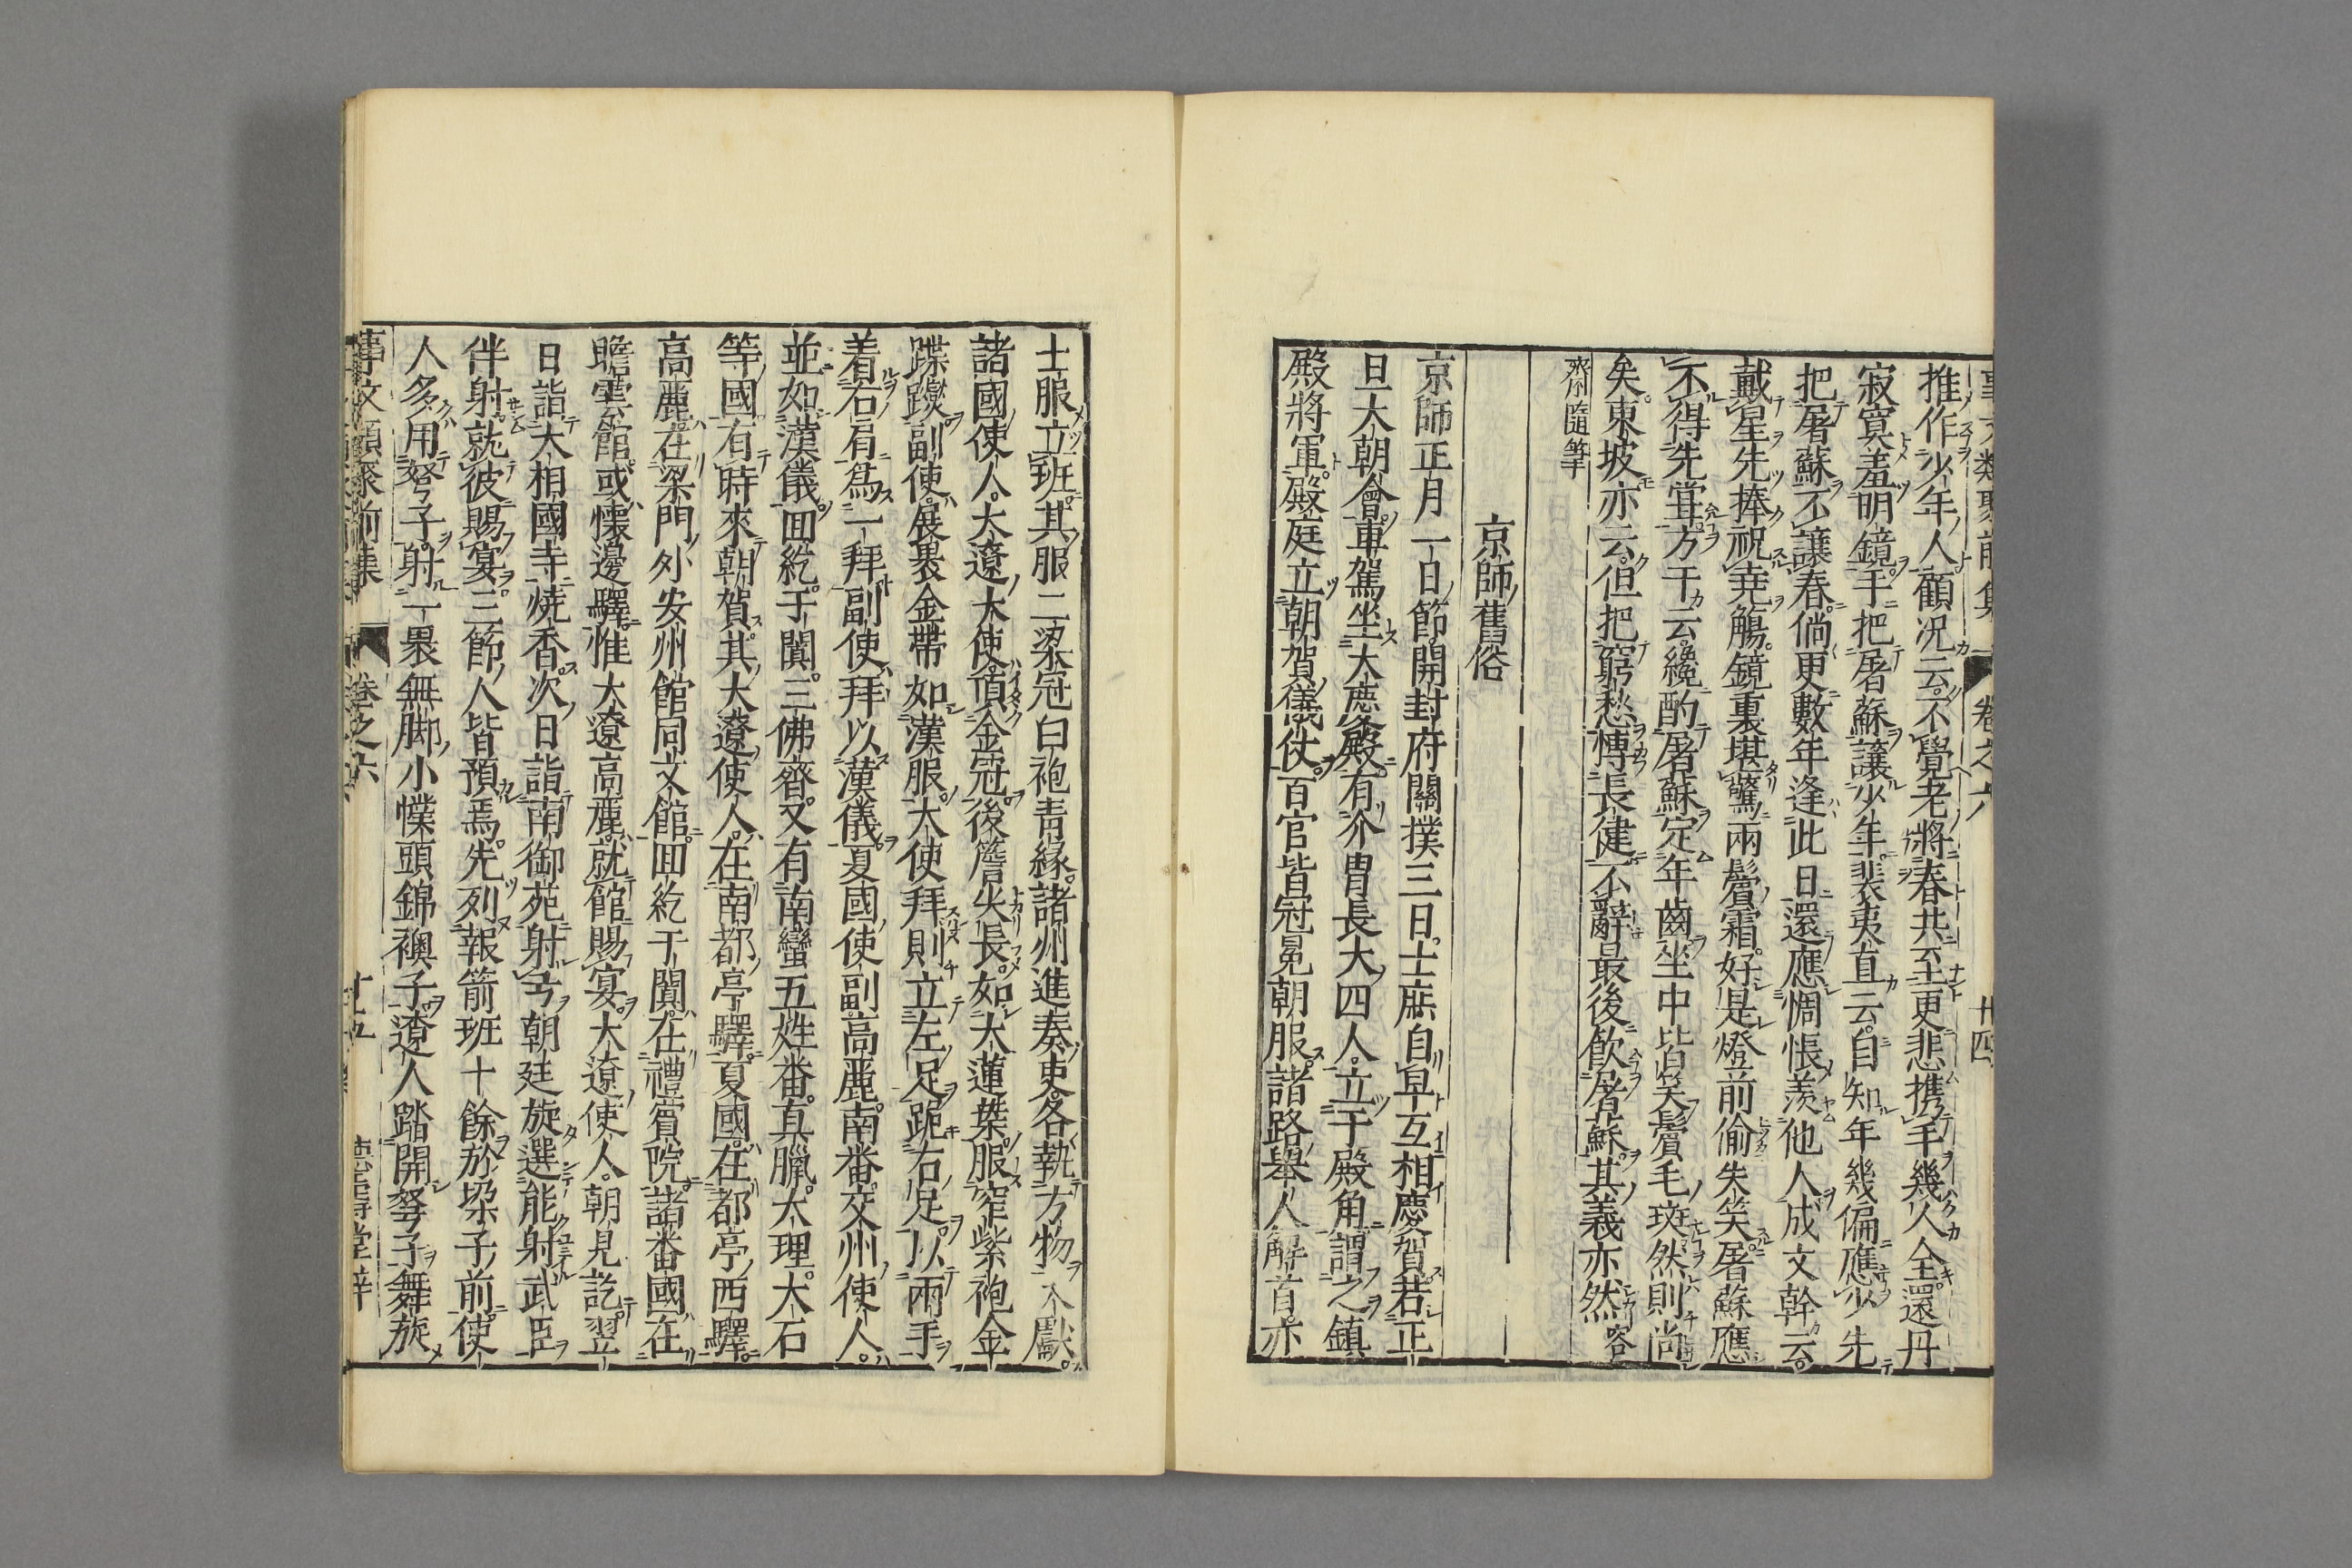 事文類聚前集 卷之六 廿四
推作少年人顧况云不覺老將春共至更悲携手幾人全還丹
寂寞羞明鏡手把屠蘇讓少年裴夷直云自知年幾偏應少先
把屠蘇不讓春倘更數年逢此日還應惆悵羨他人成文幹云
戴星先捧祝堯觴鏡裏堪驚兩鬢霜好是燈前偷失笑屠蘇應
不得先甞方干云纔酌屠蘇定年齒坐中皆笑鬢毛斑然則尚
矣東坡亦云但把窮愁博長健不辭最後飲屠蘇其義亦然容
齋隨筆
京師舊俗
京師正月一日節開封府關撲三日士庶自早互相慶賀若正
旦大朝會車駕坐大慶殿有介胄長大四人立于殿角謂之鎮
殿將軍殿庭立朝賀儀仗百官皆冠冕朝服諸路舉人解首亦
士服立班其服二梁冠白袍青緣諸州進奏吏各執方物入獻
諸國使人大遼大使頂金冠後簷尖長如大蓮葉服窄紫袍金
蹀躞副使展裹金帶如漢服大使拜則立左足跪右足以兩手
着右肩爲一拜副使拜以漢儀夏國使副高麗南番交州使人
並如漢儀囬紇于闐三佛齊又有南蠻五姓番真臘大理大石
等國有時來朝賀其大遼使人在南都亭驛夏國在都亭西驛
高麗在梁門外安州館同文館囬紇于闐在禮賓院諸番國在
瞻雲館或懷邊驛惟大遼高麗就館賜宴大遼使人朝見訖翌
日詣大相國寺燒香次日詣南御苑射弓朝廷旋選能射武臣
伴射就彼賜宴三節人皆預焉先列報箭班十餘於垜子前使
人多用弩子射一裹無脚小幞頭錦襖子遼人踏開弩子舞旋
事文類聚前集 卷之六 廿五